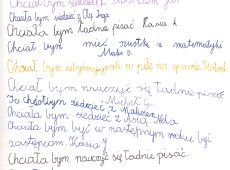 Chciałbym siedzieć
Chciał bym siedzieć z Olą
Chciała bym ładnie pisać Kasia k
Chciał bym mieć szóstkę z matematyki
Chciał bym w piłę na
Chciał bym nauczyć się ładnie pisać
Michał G.
Ja chciałbym siedzieć z
Chciała bym siedzieć z Asią Nela
Chciała bym być w następnym roku być
zastępcom. Kasia
Chciała bym nauczyć się ładnie pisać.